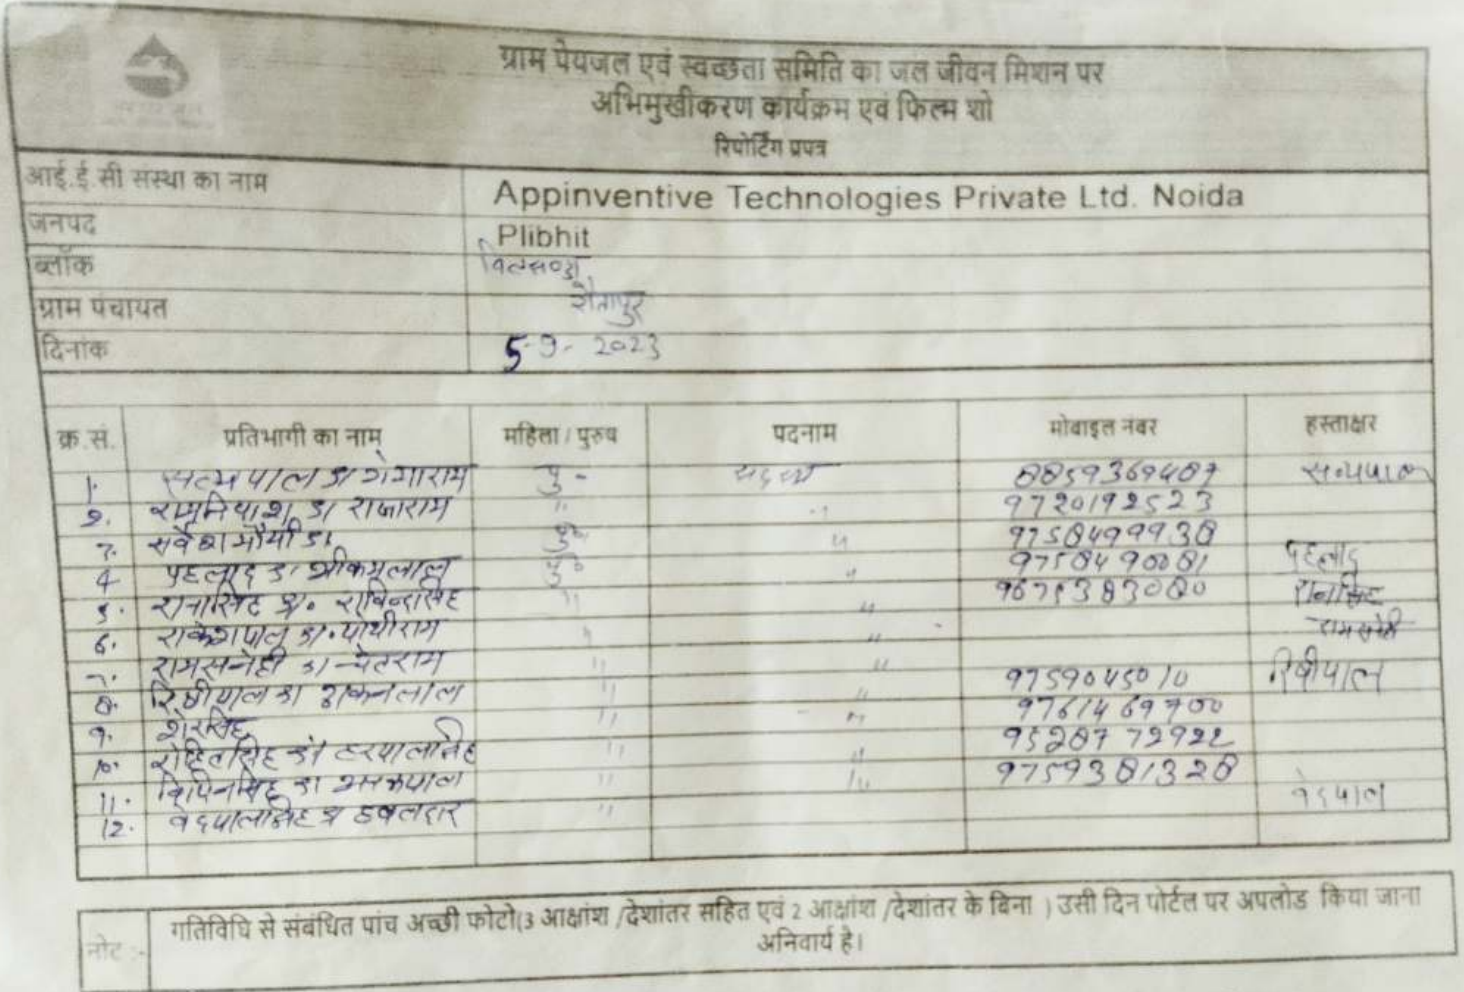 ग्राम पेयजल एवं स्वच्छता समिति का जल जीवन मिशन पर
अभिमुखीकरण कार्यक्रम एवं फिल्म शो
रिपोर्टिंग प्रपत्र
आई.ई.सी संस्था का नाम Appinventive Technologies Private Ltd. Noida
जनपद Plibhit
ब्लॉक बिलसण्डा
ग्राम पंचायत
दिनांक 5-9-2023
क्र.सं. प्रतिभागी का नाम महिला / पुरुष पदनाम मोबाइल नंबर हस्ताक्षर
1. सत्यपाल S/ गंगाराम पु - सदस्य 8859369487 सत्यपाल
2. S/ राजाराम " " 9720192523
3. सर्वेश मौर्या S/ पु॰ " 9758499938
4 प्रहलाद S/ पु॰ " 9758490081 प्रहलाद
5. S/. " "
6. राकेशपाल S/. पोथीराम " "
7. रामसनेही S/ चेतराम " " 9759045010
8. रिषीपाल S/ " " 9761469900 रिषीपाल
9. शेरसिंह " " 9528772922
10. रोहितसिंह S/ हरपालसिंह " " 9759381328
11. विपिनसिंह S/ " "
12. वेदपालसिंह S/ हवलदार " वेदपाल
नोट :- गतिविधि से संबंधित पांच अच्छी फोटो(3 आक्षांश /देशांतर सहित एवं 2 आक्षांश /देशांतर के बिना ) उसी दिन पोर्टल पर अपलोड किया जाना
अनिवार्य है।